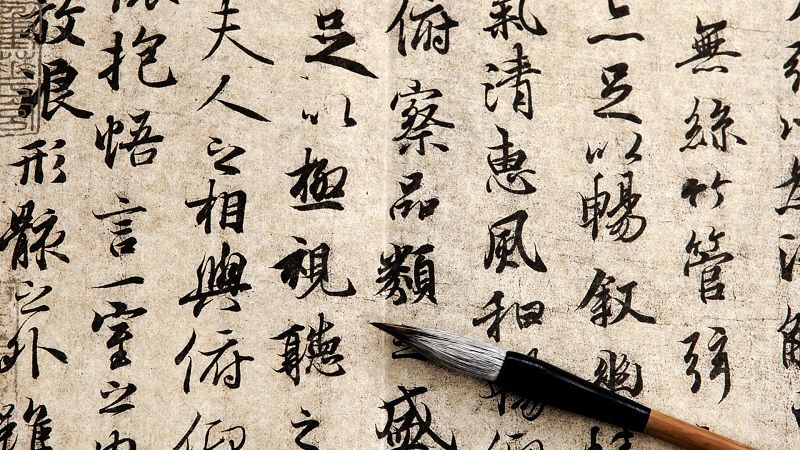 無絲竹管弦
足以暢敘幽
氣清惠風和暢
俯察品類之盛
足以極視聽之
夫人之相與俯仰
抱悟言一室之內
放浪形骸之外雖